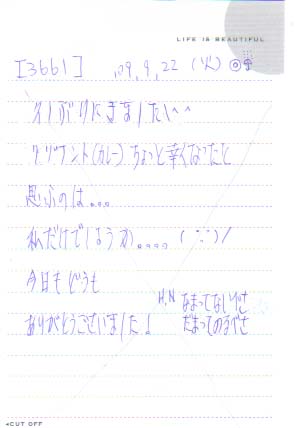 LIFE IS BEAUTIFUL
[3661] '09, 9, 22 (火)
久しぶりにきました^^
(カレー) ちょっと辛くなったと
思ふのは。。。
私だけでしょうか。。。。
今日もどうも
ありがとうございました!
H.N なまってないげさ
だまってのるべさ
◂CUT OFF